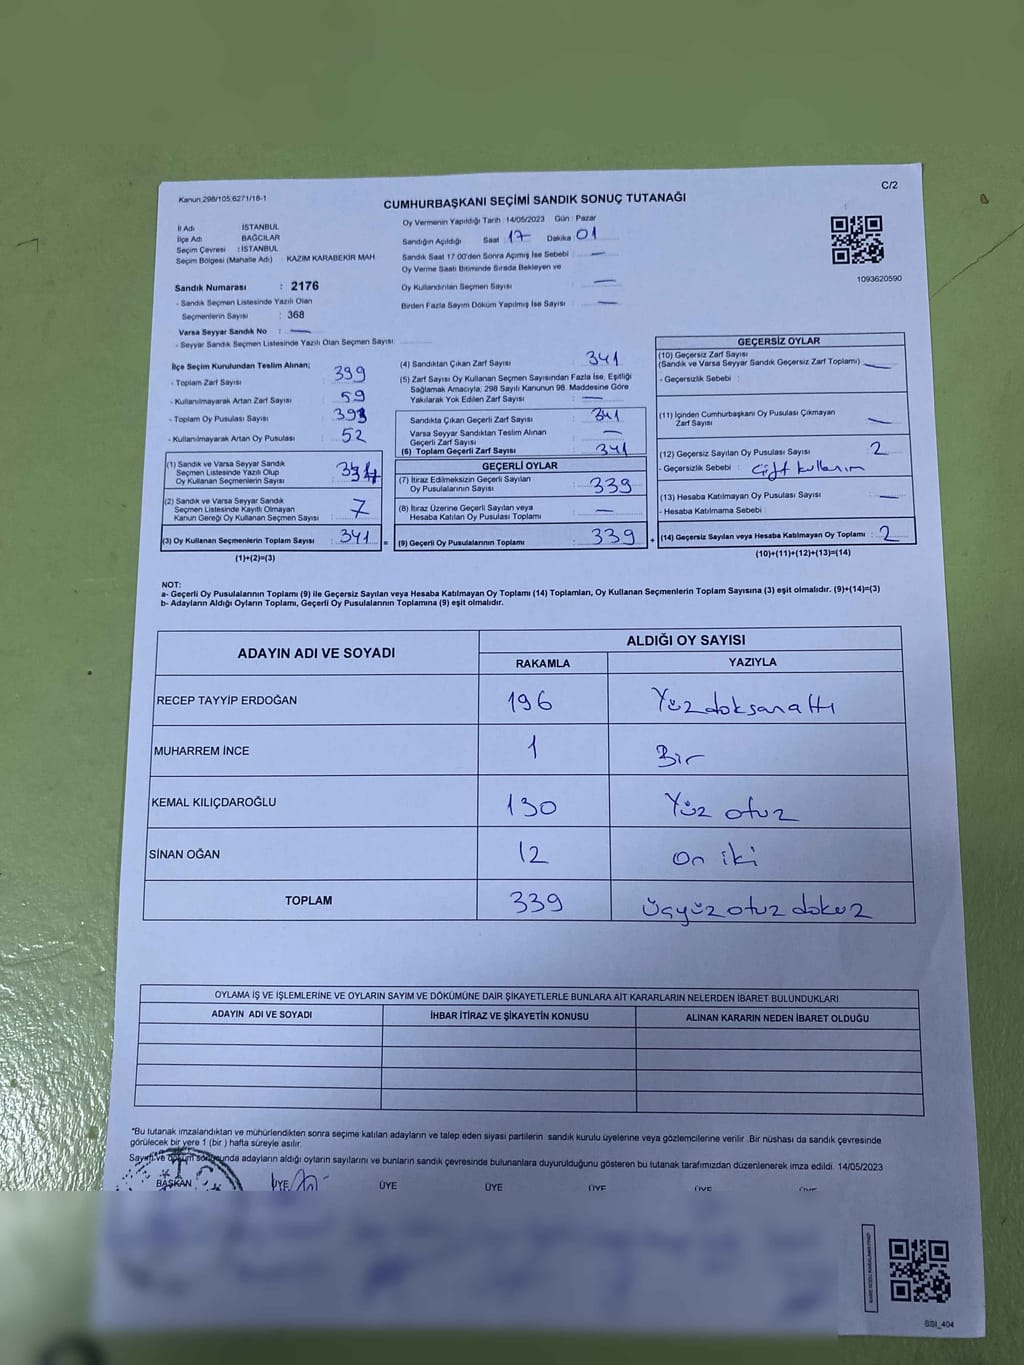 C/2
Kanun:298/105,6271/18-1
CUMHURBAŞKANI SEÇİMİ SANDIK SONUÇ TUTANAĞI
İl Adı İSTANBUL
İlçe Adı BAĞCILAR
Seçim Çevresi : İSTANBUL
Seçim Bölgesi (Mahalle Adı) : KAZIM KARABEKİR MAH
Oy Vermenin Yapıldığı Tarih :14/05/2023 Gün : Pazar
Sandığın Açıldığı Saat 17 Dakika 01
Sandık Saat 17.00'den Sonra Açımış İse Sebebi : —
Oy Verme Saati Bitiminde Sırada Bekleyen ve
Oy Kullandırılan Seçmen Sayısı : —
Birden Fazla Sayım Döküm Yapılmış İse Sayısı : —
1093620590
Sandık Numarası : 2176
- Sandık Seçmen Listesinde Yazılı Olan
Seçmenlerin Sayısı : 368
Varsa Seyyar Sandık No : —
- Seyyar Sandık Seçmen Listesinde Yazılı Olan Seçmen Sayısı:
İlçe Seçim Kurulundan Teslim Alınan;
- Toplam Zarf Sayısı : 399
- Kullanılmayarak Artan Zarf Sayısı : 59
- Toplam Oy Pusulası Sayısı : 393
- Kullanılmayarak Artan Oy Pusulası : 52
(1) Sandık ve Varsa Seyyar Sandık
Seçmen Listesinde Yazılı Olup
Oy Kullanan Seçmenlerin Sayısı : 334
(2) Sandık ve Varsa Seyyar Sandık
Seçmen Listesinde Kayıtlı Olmayan
Kanun Gereği Oy Kullanan Seçmen Sayısı : 7
(3) Oy Kullanan Seçmenlerin Toplam Sayısı : 341 =
(1)+(2)=(3)
(4) Sandıktan Çıkan Zarf Sayısı : 341
(5) Zarf Sayısı Oy Kullanan Seçmen Sayısından Fazla İse, Eşitliği
Sağlamak Amacıyla, 298 Sayılı Kanunun 98. Maddesine Göre
Yakılarak Yok Edilen Zarf Sayısı : —
Sandıkta Çıkan Geçerli Zarf Sayısı : 341
Varsa Seyyar Sandıktan Teslim Alınan
Geçerli Zarf Sayısı : —
(6) Toplam Geçerli Zarf Sayısı : 341
GEÇERLİ OYLAR
(7) İtiraz Edilmeksizin Geçerli Sayılan
Oy Pusulalarının Sayısı : 339
(8) İtiraz Üzerine Geçerli Sayılan veya
Hesaba Katılan Oy Pusulası Toplamı : —
(9) Geçerli Oy Pusulalarının Toplamı : 339 +
GEÇERSİZ OYLAR
(10) Geçersiz Zarf Sayısı
(Sandık ve Varsa Seyyar Sandık Geçersiz Zarf Toplamı) : —
- Geçersizlik Sebebi :
(11) İçinden Cumhurbaşkanı Oy Pusulası Çıkmayan
Zarf Sayısı : —
(12) Geçersiz Sayılan Oy Pusulası Sayısı : 2
- Geçersizlik Sebebi : Çift kullanım
(13) Hesaba Katılmayan Oy Pusulası Sayısı : —
- Hesaba Katılmama Sebebi :
(14) Geçersiz Sayılan veya Hesaba Katılmayan Oy Toplamı : 2
(10)+(11)+(12)+(13)=(14)
NOT:
a- Geçerli Oy Pusulalarının Toplamı (9) ile Geçersiz Sayılan veya Hesaba Katılmayan Oy Toplamı (14) Toplamları, Oy Kullanan Seçmenlerin Toplam Sayısına (3) eşit olmalıdır. (9)+(14)=(3)
b- Adayların Aldığı Oyların Toplamı, Geçerli Oy Pusulalarının Toplamına (9) eşit olmalıdır.
ADAYIN ADI VE SOYADI ALDIĞI OY SAYISI
RAKAMLA YAZIYLA
RECEP TAYYİP ERDOĞAN 196 Yüzdoksanaltı
MUHARREM İNCE 1 Bir
KEMAL KILIÇDAROĞLU 130 Yüz otuz
SİNAN OĞAN 12 On iki
TOPLAM 339 Üçyüz otuz dokuz
OYLAMA İŞ VE İŞLEMLERİNE VE OYLARIN SAYIM VE DÖKÜMÜNE DAİR ŞİKAYETLERLE BUNLARA AİT KARARLARIN NELERDEN İBARET BULUNDUKLARI
ADAYIN ADI VE SOYADI İHBAR İTİRAZ VE ŞİKAYETİN KONUSU ALINAN KARARIN NEDEN İBARET OLDUĞU
*Bu tutanak imzalandıktan ve mühürlendikten sonra seçime katılan adayların ve talep eden siyasi partilerin sandık kurulu üyelerine veya gözlemcilerine verilir .Bir nüshası da sandık çevresinde
görülecek bir yere 1 (bir ) hafta süreyle asılır.
Sayım ve döküm sonucunda adayların aldığı oyların sayılarını ve bunların sandık çevresinde bulunanlara duyurulduğunu gösteren bu tutanak tarafımızdan düzenlenerek imza edildi. 14/05/2023
BAŞKAN ÜYE ÜYE ÜYE ÜYE ÜYE ÜYE
SBI_404